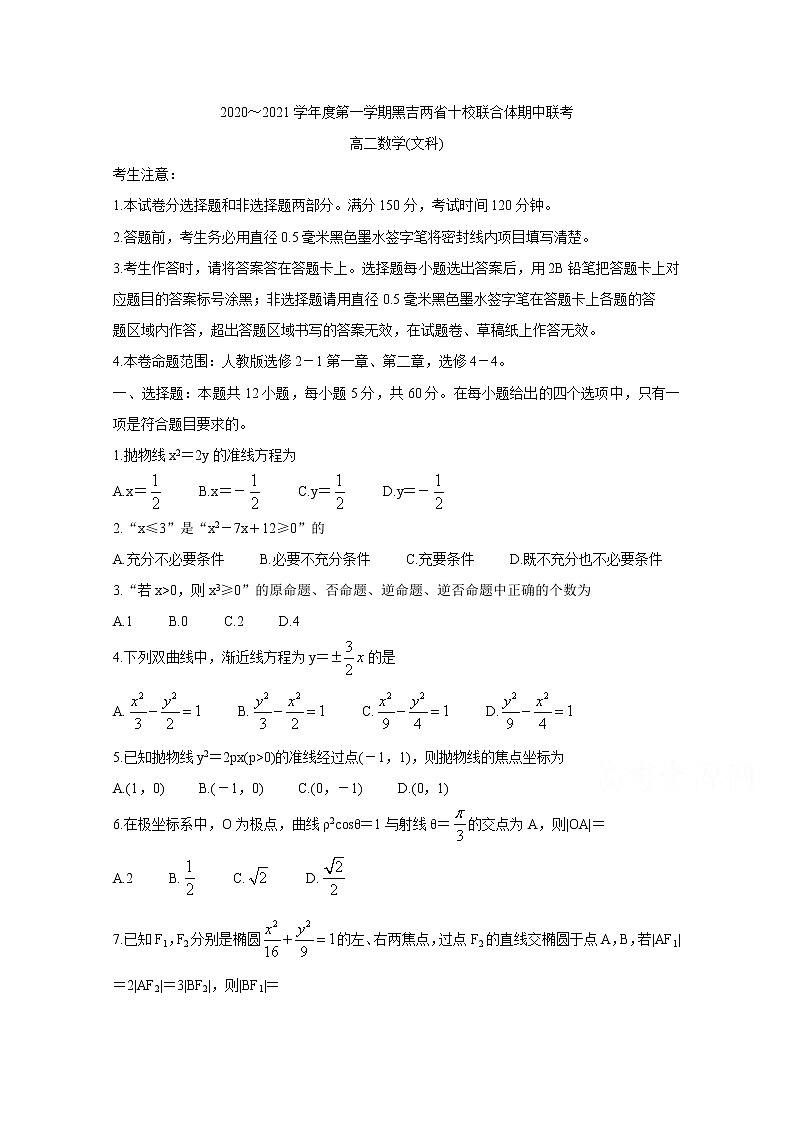 2020～2021学年度第一学期黑吉两省十校联合体期中联考
高二数学(文科)
考生注意：
1.本试卷分选择题和非选择题两部分。满分150分，考试时间120分钟。
2.答题前，考生务必用直径0.5毫米黑色墨水签字笔将密封线内项目填写清楚。
3.考生作答时，请将答案答在答题卡上。选择题每小题选出答案后，用2B铅笔把答题卡上对
应题目的答案标号涂黑；非选择题请用直径0.5毫米黑色墨水签字笔在答题卡上各题的答
题区域内作答，超出答题区域书写的答案无效，在试题卷、草稿纸上作答无效。
4.本卷命题范围：人教版选修2－1第一章、第二章，选修4－4。
一、选择题：本题共12小题，每小题5分，共60分。在每小题给出的四个选项中，只有一
项是符合题目要求的。
1.抛物线x²＝2y的准线方程为
A.x＝1/2 B.x＝－1/2 C.y＝1/2 D.y＝－1/2
2.“x≤3”是“x²－7x＋12≥0”的
A.充分不必要条件 B.必要不充分条件 C.充要条件 D.既不充分也不必要条件
3.“若x>0，则x³≥0”的原命题、否命题、逆命题、逆否命题中正确的个数为
A.1 B.0 C.2 D.4
4.下列双曲线中，渐近线方程为y＝±3/2 x的是
A. x²/3－y²/2＝1 B. y²/3－x²/2＝1 C. x²/9－y²/4＝1 D. y²/9－x²/4＝1
5.已知抛物线y²＝2px(p>0)的准线经过点(－1，1)，则抛物线的焦点坐标为
A.(1，0) B.(－1，0) C.(0，－1) D.(0，1)
6.在极坐标系中，O为极点，曲线ρ²cosθ＝1与射线θ＝π/3的交点为A，则|OA|＝
A.2 B. 1/2 C. √2 D. √2/2
7.已知F₁，F₂分别是椭圆x²/16＋y²/9＝1的左、右两焦点，过点F₂的直线交椭圆于点A，B，若|AF₁|
＝2|AF₂|＝3|BF₂|，则|BF₁|＝